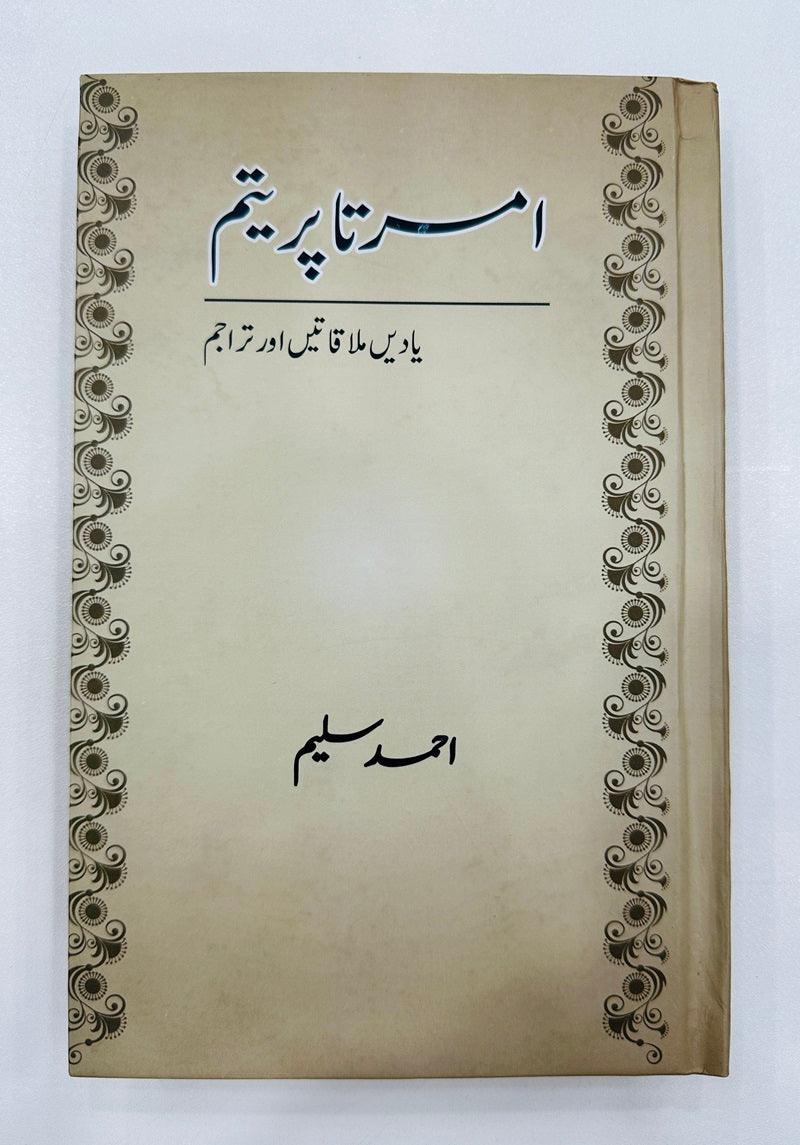 امرتا پریتم
یادیں ملاقاتیں اور تراجم
احمد سلیم